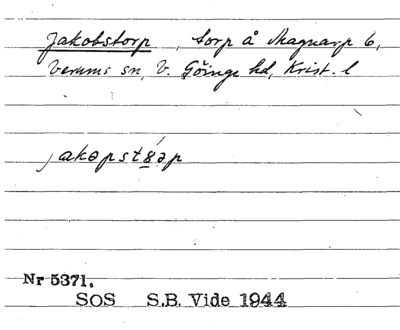 Jakobstorp, torp å Magnarp 6,
Verums sn, V. Göinge hd, Krist. l
jakəpstɤ́əp
Nr 5371.
SOS S.B. Vide 1944